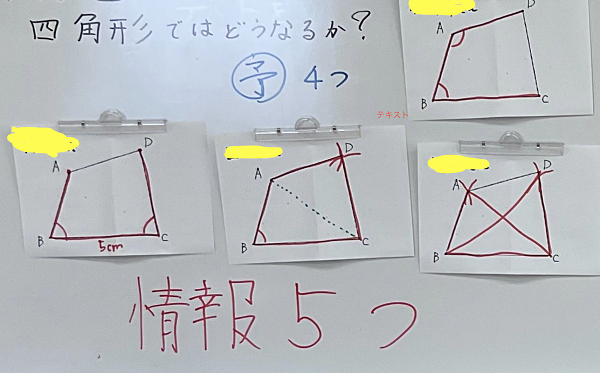 四角形ではどうなるか?
予 4つ
テキスト
A
D
B
C
A
D
B
C
5cm
A
D
B
C
A
D
B
C
情報5つ